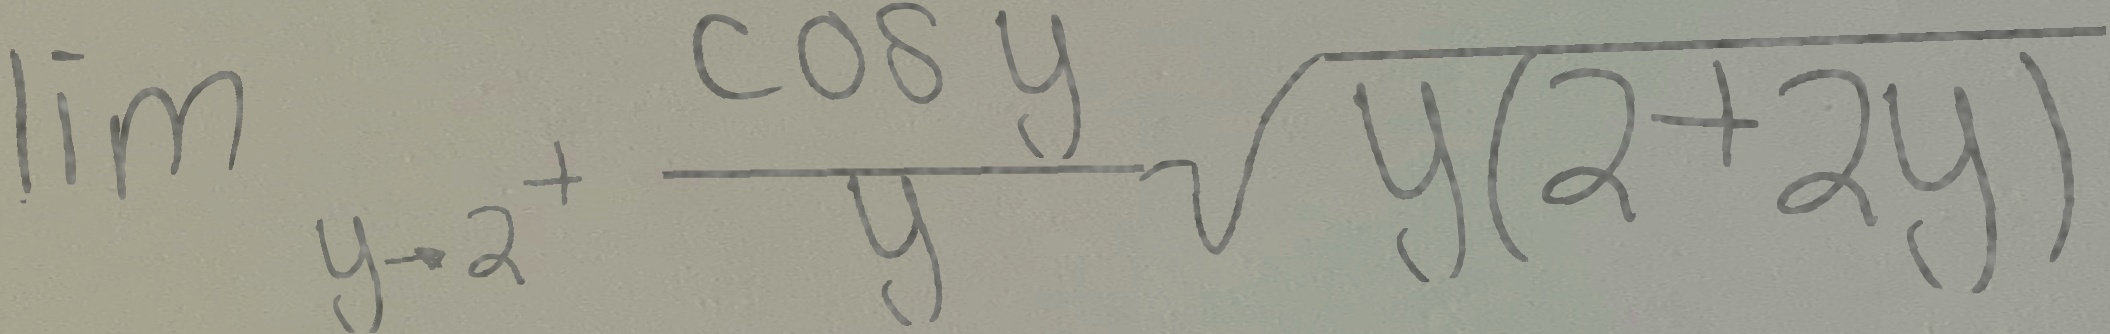 \lim_{y \to 2^+} \frac{\cos y}{y} \sqrt{y(2+2y)}